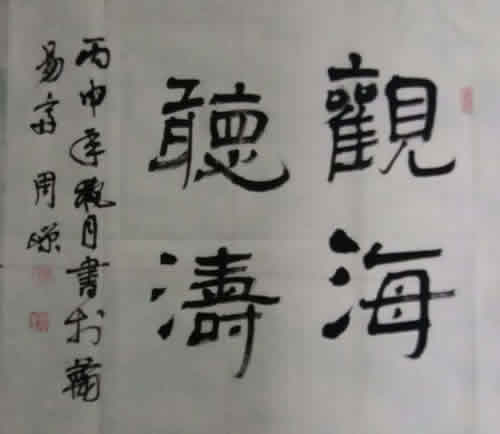 觀海
聽濤
丙申年月書於
易齋周